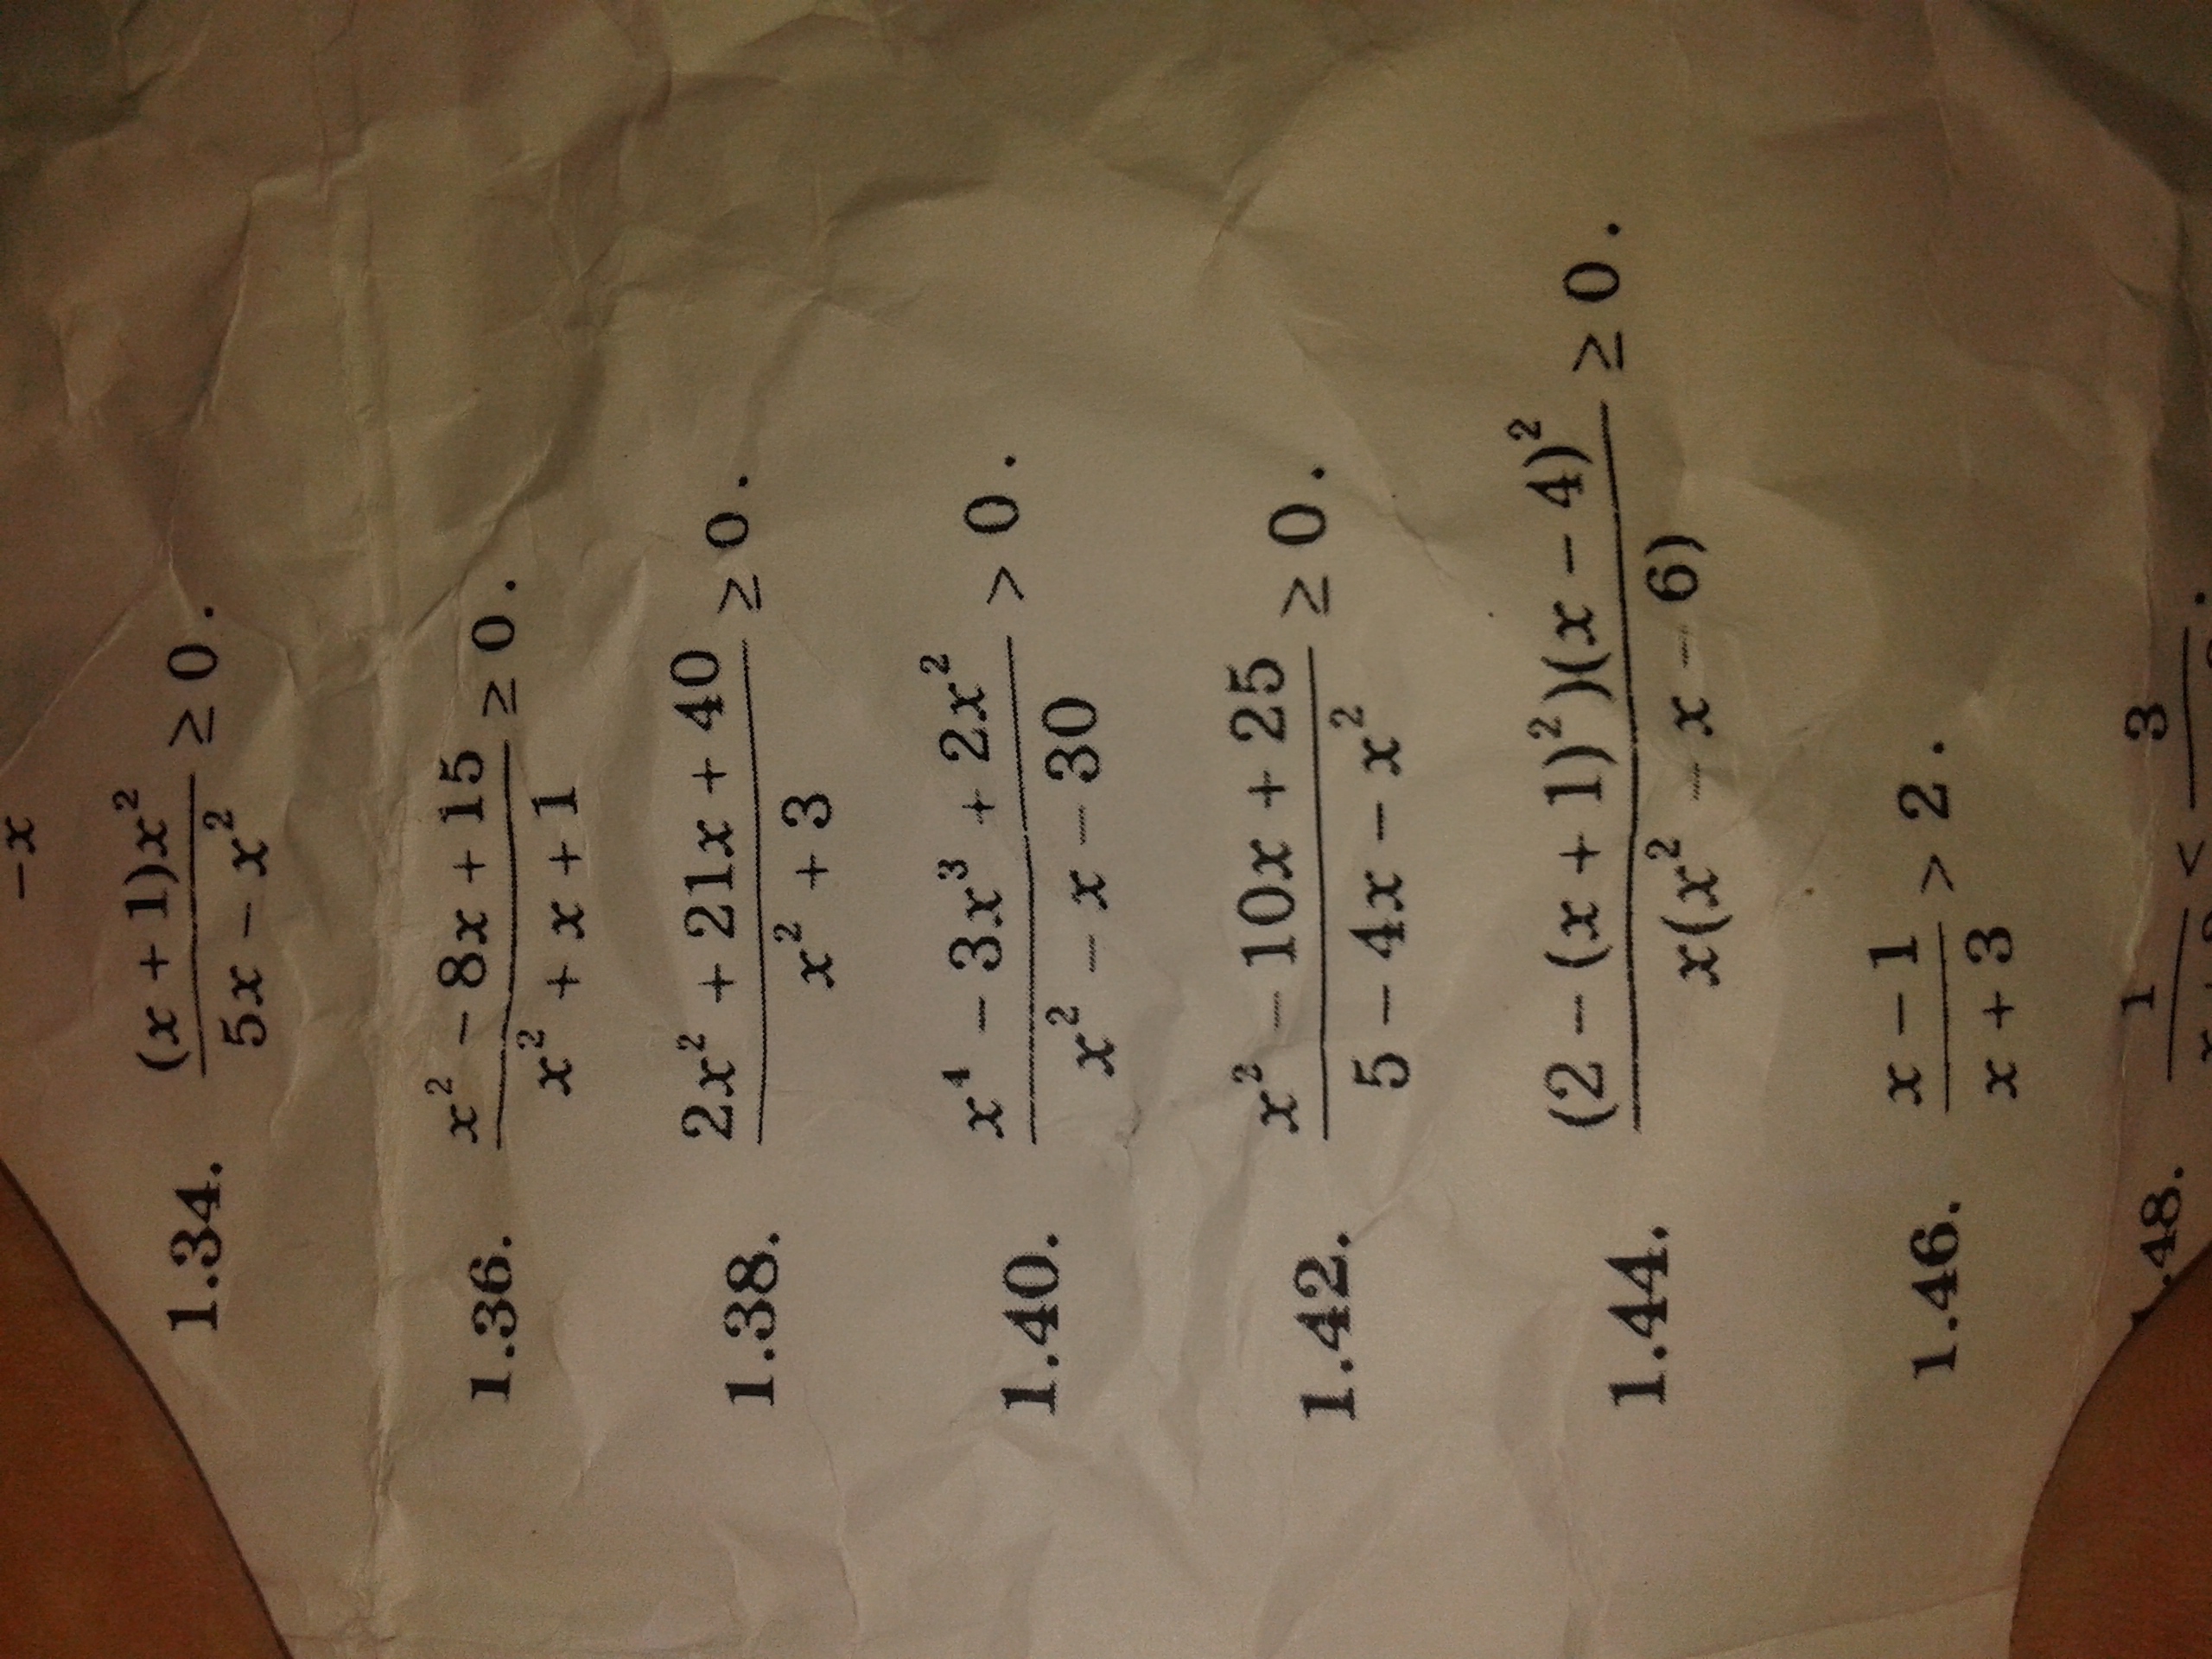 -x
1.34. \frac{(x + 1)x^2}{5x - x^2} ≥ 0.
1.36. \frac{x^2 - 8x + 15}{x^2 + x + 1} ≥ 0.
1.38. \frac{2x^2 + 21x + 40}{x^2 + 3} ≥ 0.
1.40. \frac{x^4 - 3x^3 + 2x^2}{x^2 - x - 30} > 0.
1.42. \frac{x^2 - 10x + 25}{5 - 4x - x^2} ≥ 0.
1.44. \frac{(2 - (x + 1)^2)(x - 4)^2}{x(x^2 - x - 6)} ≥ 0.
1.46. \frac{x - 1}{x + 3} > 2.
.48. 1 < 3 .